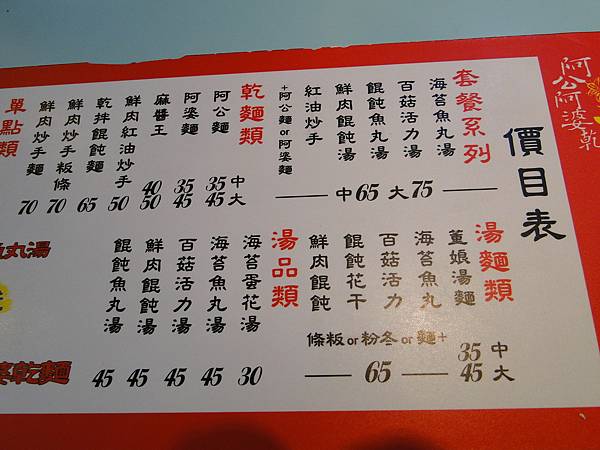 阿公阿婆乾
價目表
套餐系列
海苔魚丸湯
百菇活力湯
餛飩魚丸湯
鮮肉餛飩湯
紅油炒手
+阿公麵or阿婆麵
中65 大75
乾麵類
中 大
阿公麵 35 45
阿婆麵 35 45
麻醬王 40 50
鮮肉紅油炒手 50
乾拌餛飩麵 65
鮮肉炒手粄條 70
鮮肉炒手麵 70
單點類
湯麵類
薑娘湯麵 35中 45大
海苔魚丸
百菇活力
餛飩花干
鮮肉餛飩
條粄or粉冬or麵+
65
湯品類
海苔蛋花湯 30
海苔魚丸湯 45
百菇活力湯 45
鮮肉餛飩湯 45
餛飩魚丸湯 45
丸湯
乾麵